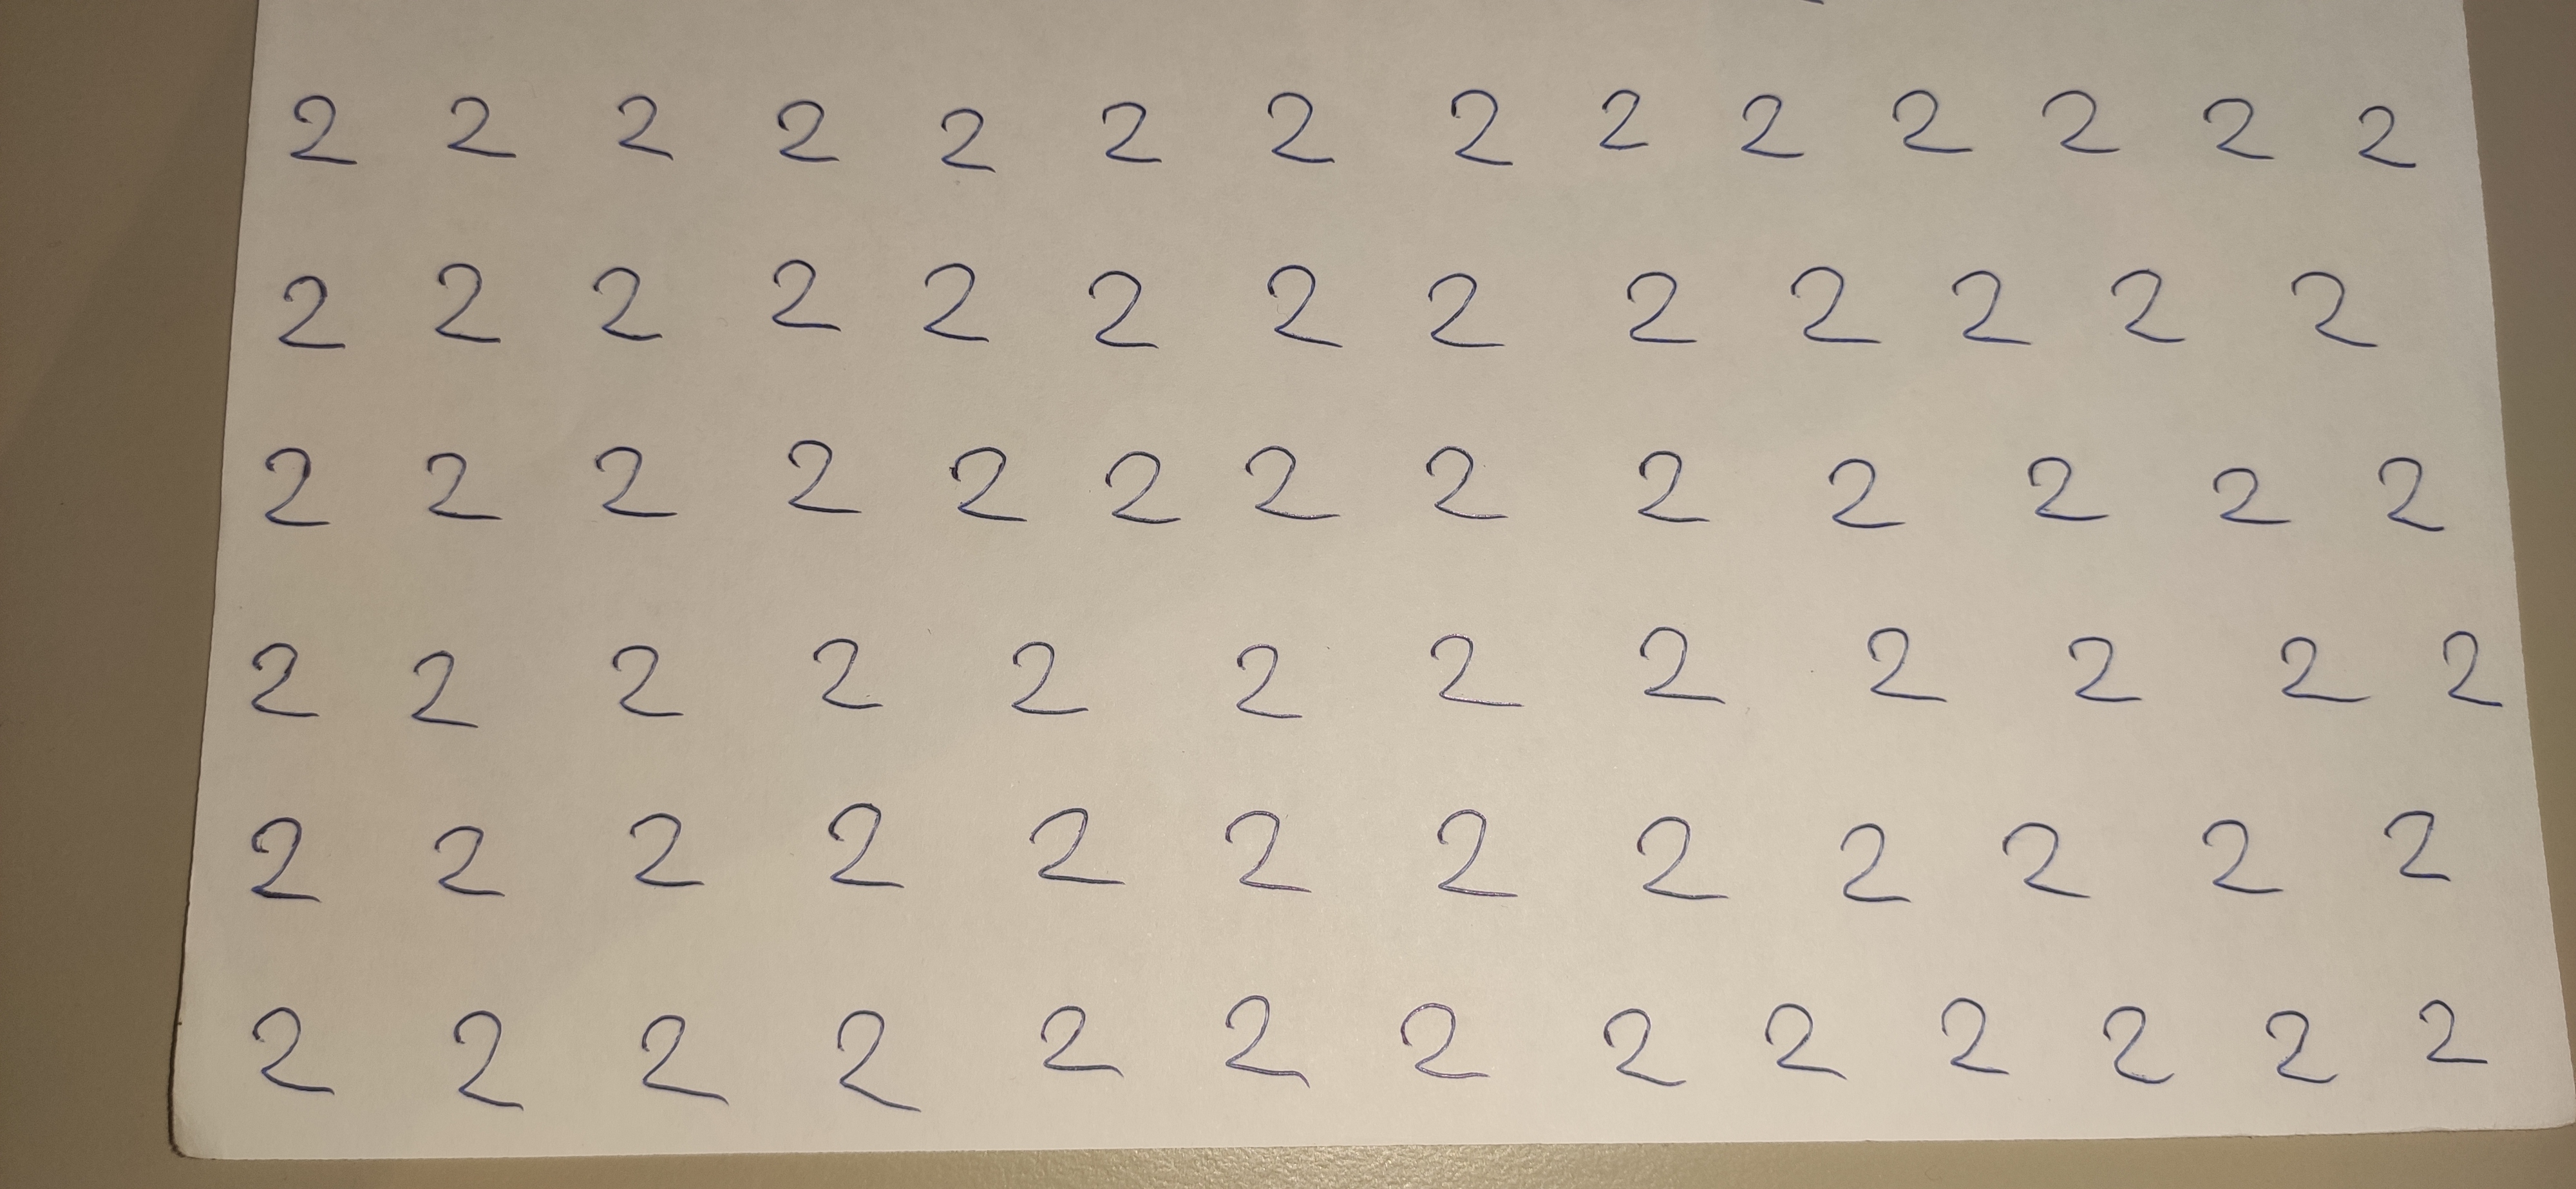 2 2 2 2 2 2 2 2 2 2 2 2 2 2
2 2 2 2 2 2 2 2 2 2 2 2 2
2 2 2 2 2 2 2 2 2 2 2 2 2
2 2 2 2 2 2 2 2 2 2 2 2
2 2 2 2 2 2 2 2 2 2 2 2
2 2 2 2 2 2 2 2 2 2 2 2 2